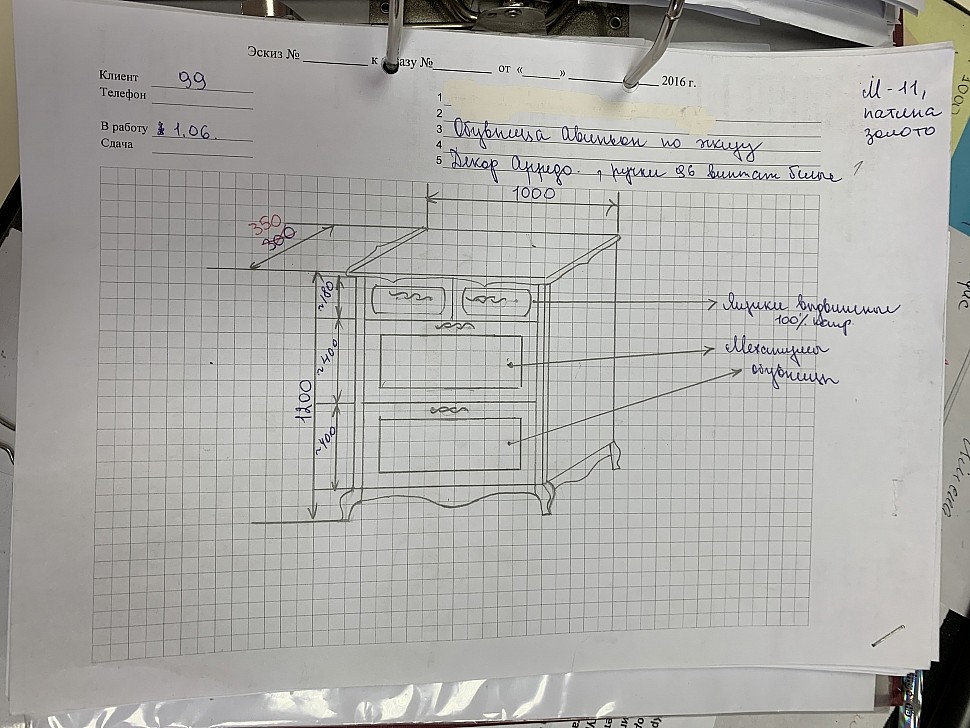 Эскиз № к заказу № от « » 2016 г.
Клиент 99
Телефон
В работу 1.06.
Сдача
1
2
3 Обувница Авиньон по эскизу
4
5 Декор Арредо, ручки 96 винтаж белые
М-11,
патина
золото
1000
350
300
~180
~400
~400
1200
Ящики выдвижные
100% напр.
Механизмы
обувницы